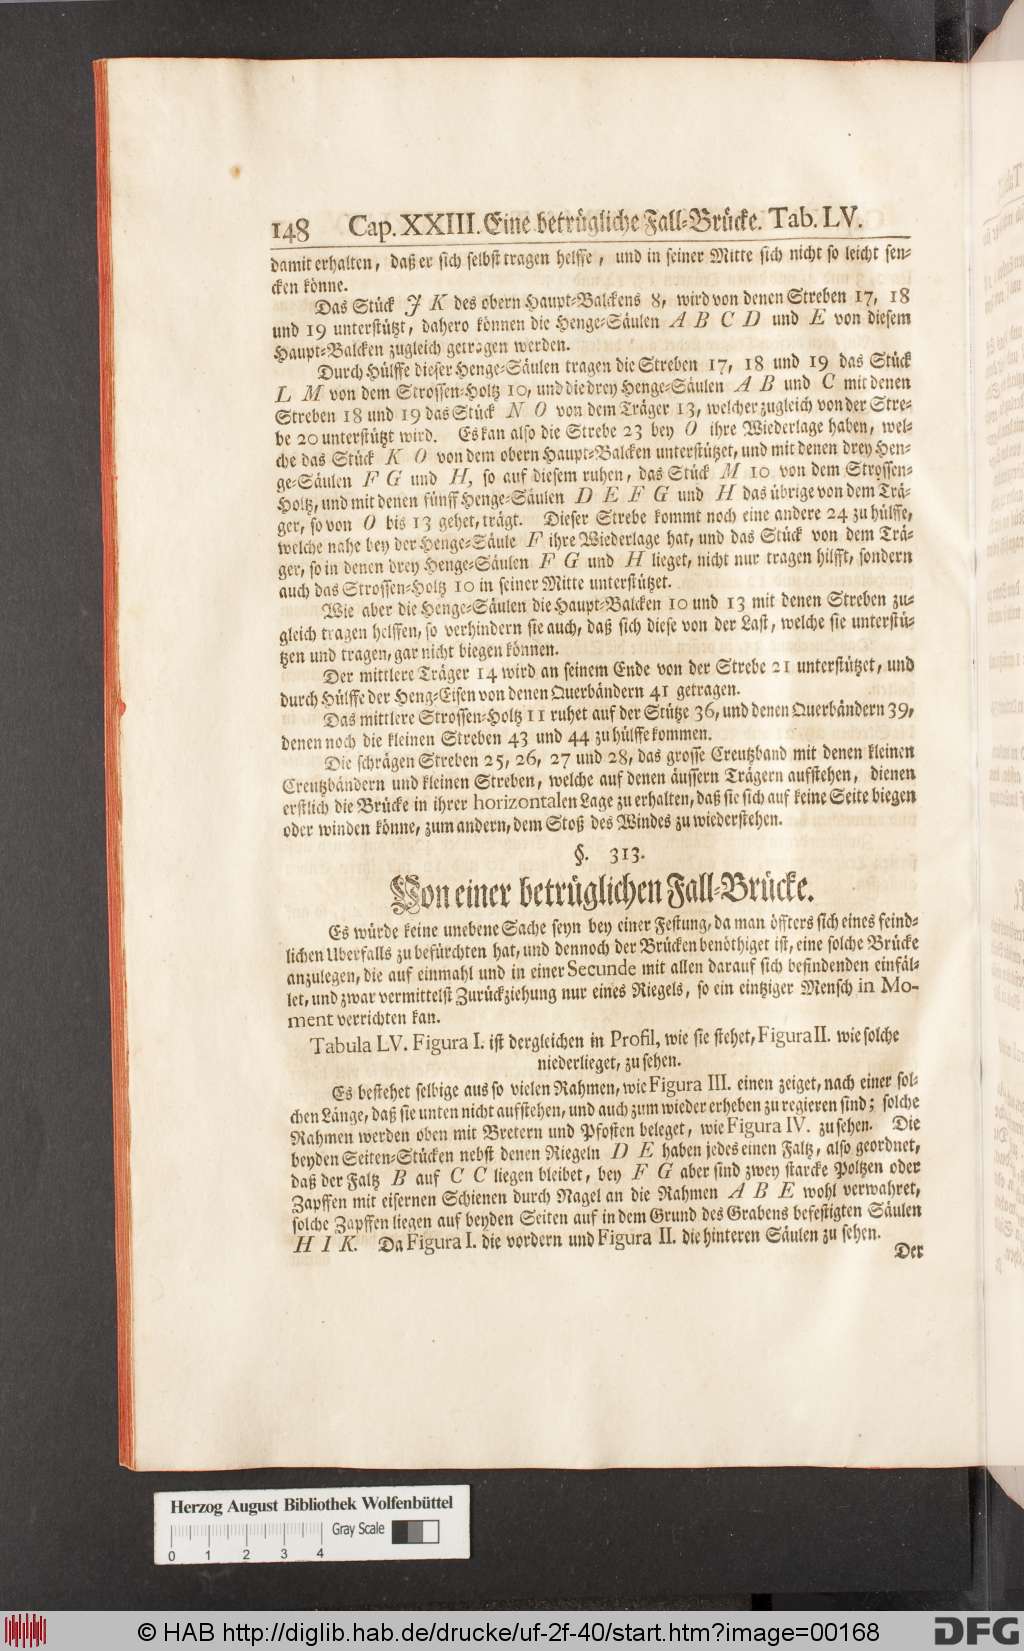 148 Cap. XXIII. Eine betrügliche Fall-Brücke. Tab. LV.
damit erhalten, daß er sich selbst tragen helffe, und in seiner Mitte sich nicht so leicht sen-
cken könne.
Das Stück J K des obern Haupt-Balckens 8, wird von denen Streben 17, 18
und 19 unterstützt, dahero können die Henge-Säulen A B C D und E von diesem
Haupt-Balcken zugleich getragen werden.
Durch Hülffe dieser Henge-Säulen tragen die Streben 17, 18 und 19 das Stück
L M von dem Strossen-Holtz 10, und die drey Henge-Säulen A B und C mit denen
Streben 18 und 19 das Stück N O von dem Träger 13, welcher zugleich von der Stre-
be 20 unterstützt wird. Es kan also die Strebe 23 bey O ihre Wiederlage haben, wel-
che das Stück K O von dem obern Haupt-Balcken unterstützet, und mit denen drey Hen-
ge-Säulen F G und H, so auf diesem ruhen, das Stück M 10 von dem Strossen-
Holtz, und mit denen fünff Henge-Säulen D E F G und H das übrige von dem Trä-
ger, so von O bis 13 gehet, trägt. Dieser Strebe kommt noch eine andere 24 zu hülffe,
welche nahe bey der Henge-Säule F ihre Wiederlage hat, und das Stück von dem Trä-
ger, so in denen drey Henge-Säulen F G und H lieget, nicht nur tragen hilfft, sondern
auch das Strossen-Holtz 10 in seiner Mitte unterstützet.
Wie aber die Henge-Säulen die Haupt-Balcken 10 und 13 mit denen Streben zu-
gleich tragen helffen, so verhindern sie auch, daß sich diese von der Last, welche sie unterstü-
tzen und tragen, gar nicht biegen können.
Der mittlere Träger 14 wird an seinem Ende von der Strebe 21 unterstützet, und
durch Hülffe der Heng-Eisen von denen Querbändern 41 getragen.
Das mittlere Strossen-Holtz 11 ruhet auf der Stütze 36, und denen Querbändern 39,
denen noch die kleinen Streben 43 und 44 zu hülffe kommen.
Die schrägen Streben 25, 26, 27 und 28, das grosse Creutzband mit denen kleinen
Creutzbändern und kleinen Streben, welche auf denen äussern Trägern aufstehen, dienen
erstlich die Brücke in ihrer horizontalen Lage zu erhalten, daß sie sich auf keine Seite biegen
oder winden könne, zum andern, dem Stoß des Windes zu wiederstehen.
§. 313.
Von einer betrüglichen Fall-Brücke.
Es würde keine unebene Sache seyn bey einer Festung, da man öffters sich eines feind-
lichen Uberfalls zu befürchten hat, und dennoch der Brücken benöthiget ist, eine solche Brücke
anzulegen, die auf einmahl und in einer Secunde mit allen darauf sich befindenden einfäl-
let, und zwar vermittelst Zurückziehung nur eines Riegels, so ein eintziger Mensch in Mo-
ment verrichten kan.
Tabula LV. Figura I. ist dergleichen in Profil, wie sie stehet, Figura II. wie solche
niederlieget, zu sehen.
Es bestehet selbige aus so vielen Rahmen, wie Figura III. einen zeiget, nach einer sol-
chen Länge, daß sie unten nicht aufstehen, und auch zum wieder erheben zu regieren sind; solche
Rahmen werden oben mit Bretern und Pfosten beleget, wie Figura IV. zu sehen. Die
beyden Seiten-Stücken nebst denen Riegeln D E haben jedes einen Faltz, also geordnet,
daß der Faltz B auf C C liegen bleibet, bey F G aber sind zwey starcke Poltzen oder
Zapffen mit eisernen Schienen durch Nagel an die Rahmen A B E wohl verwahret,
solche Zapffen liegen auf beyden Seiten auf in dem Grund des Grabens befestigten Säulen
H I K. Da Figura I. die vordern und Figura II. die hinteren Säulen zu sehen.
Der
Herzog August Bibliothek Wolfenbüttel
Gray Scale
0 1 2 3 4
© HAB http://diglib.hab.de/drucke/uf-2f-40/start.htm?image=00168
DFG